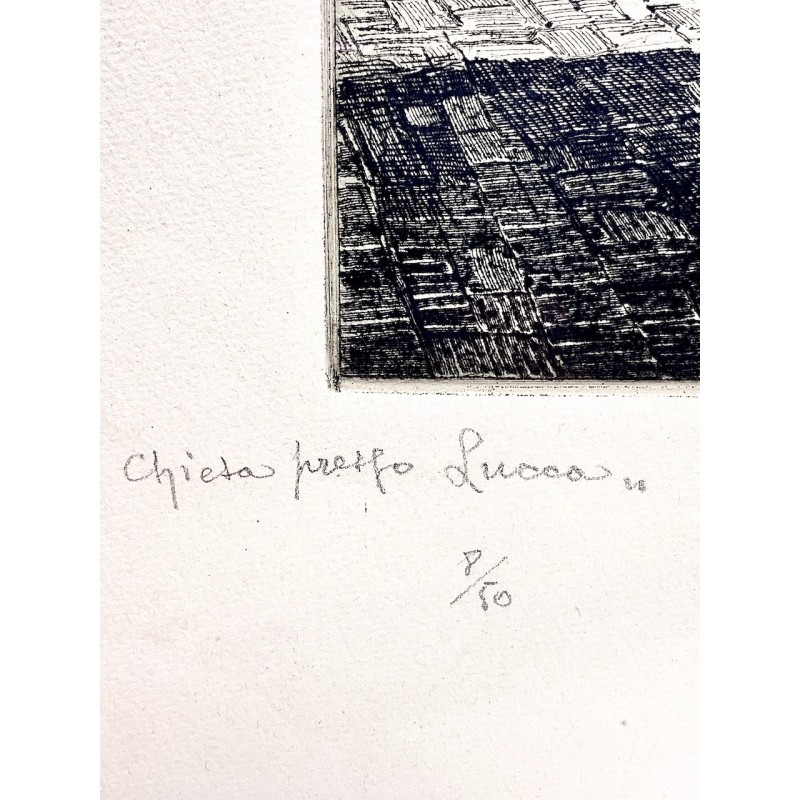 Chiesa presso Lucca "
8/50